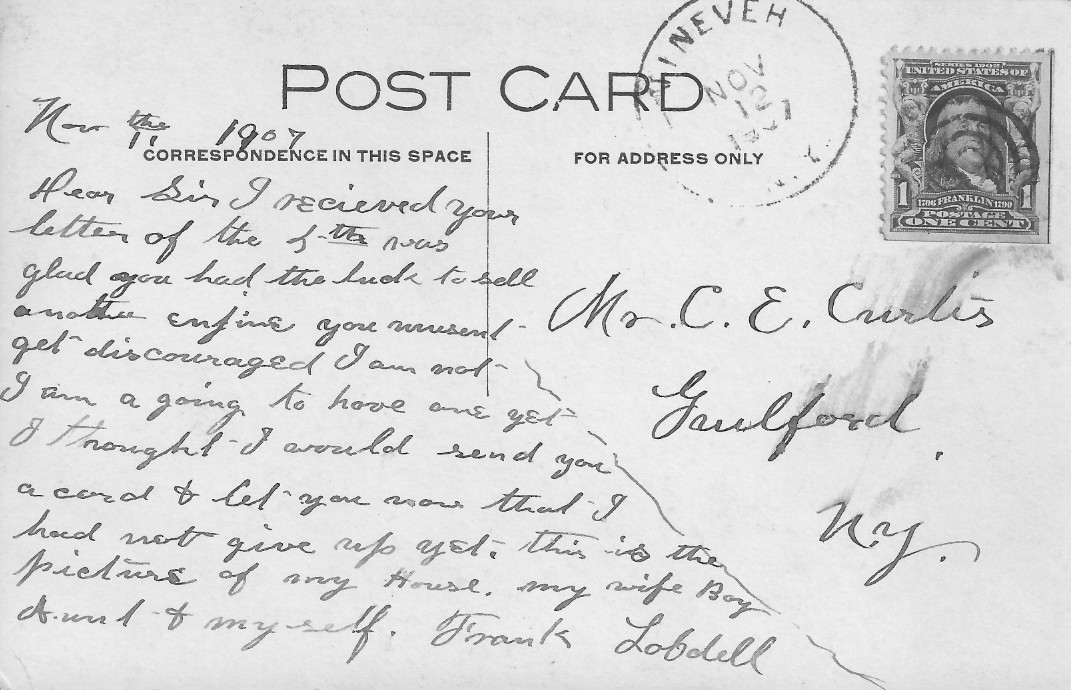 NINEVEH
NOV
12
1907
N.Y.
SERIES 1902
UNITED STATES OF
AMERICA
1 1
1706 FRANKLIN 1790
POSTAGE
ONE CENT
POST CARD
Nov the 11 1907
CORRESPONDENCE IN THIS SPACE
FOR ADDRESS ONLY
Dear Sir I recieved your
letter of the 5th was
glad you had the luck to sell
another engine you musent
get discouraged I am not
I am a going to have one yet
I thought I would send you
a card & let you now that I
had not give up yet. this is the
picture of my House. my wife Boy
Aunt & myself. Frank Lobdell
Mr. C. E. Curtis
Guilford
N.Y.